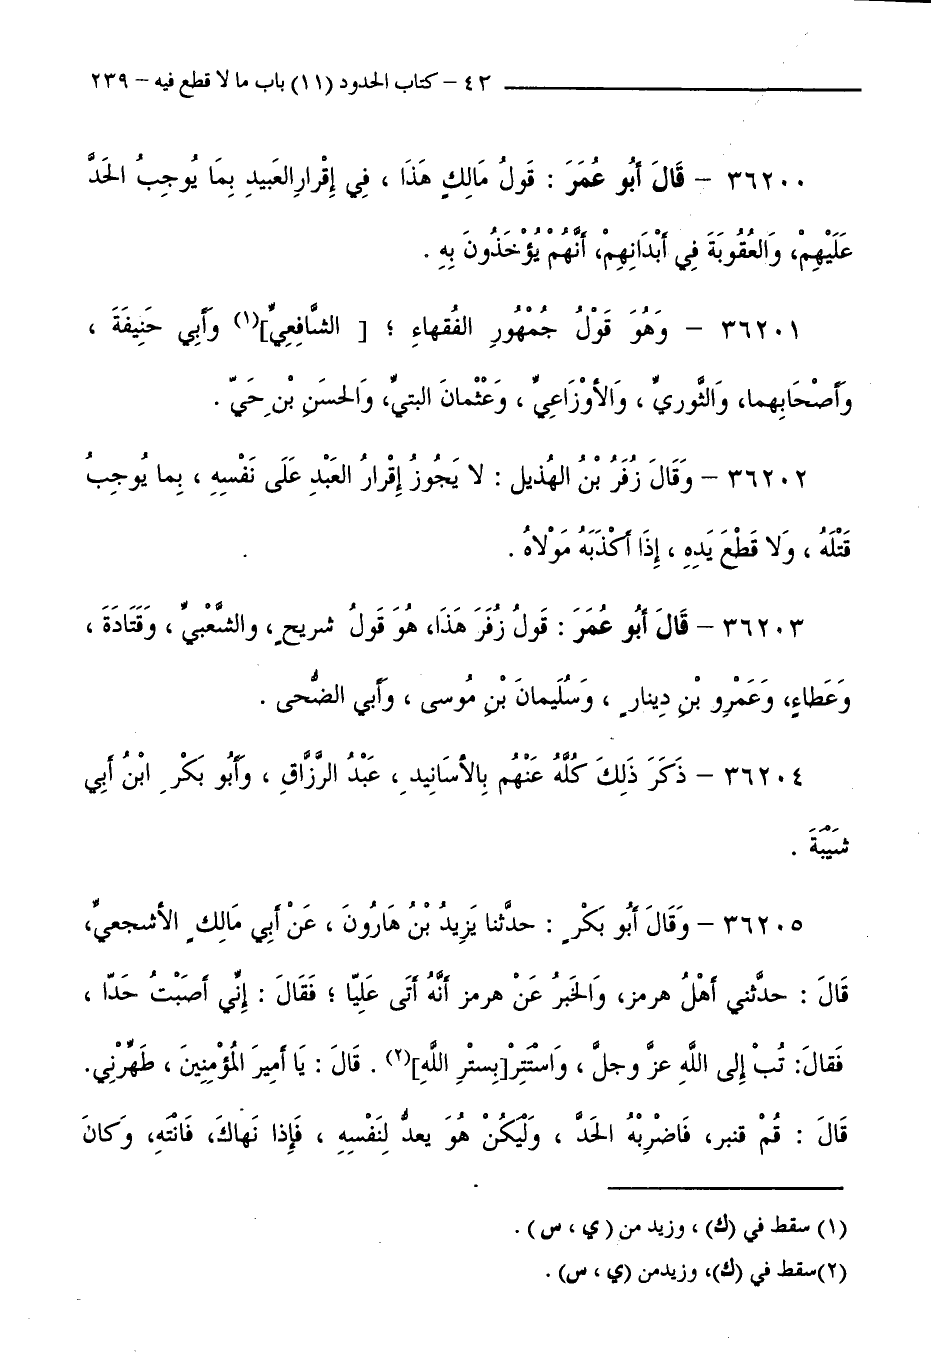 ٤٣ – كتاب الحدود (١١) باب ما لا قطع فيه – ٢٣٩
٣٦٢٠٠ – قَالَ أَبُو عُمَرَ : قَولُ مَالِكٍ هَذَا ، فِي إِقْرارِ العَبيدِ بِمَا يُوجِبُ الحَدَّ
عَلَيْهِمْ، وَالعُقُوبَةَ فِي أَبْدَانِهِمْ، أَنَّهُمْ يُؤْخَذُونَ بِهِ .
٣٦٢٠١ – وَهُوَ قَوْلُ جُمْهُورِ الفُقهاءِ ؛ [ الشَّافِعِيِّ](١) وَأَبِي حَنِيفَةَ ،
وَأَصْحَابِهما، وَالثَّوريِّ ، وَالأوْزَاعِيِّ ، وَعُثْمانَ البتيِّ، وَالحسَنِ بْنِ حَيّ .
٣٦٢٠٢ – وَقَالَ زُفَرُ بْنُ الهُذيل : لا يَجُوزُ إِقْرارُ العَبْدِ عَلَى نَفْسِهِ ، بِما يُوجِبُ
قَتْلَهُ ، وَلا قَطْعَ يَدِهِ ، إِذَا أَكْذَبَهُ مَوْلاهُ .
٣٦٢٠٣ – قَالَ أَبُو عُمَرَ : قَولُ زُفَرَ هَذَا، هُوَ قَولُ شريحٍ، والشَّعْبيِّ ، وقَتَادَةَ ،
وَعَطاءٍ، وَعَمْرِو بْنِ دِينارٍ ، وَسُلَيمانَ بْنِ مُوسى ، وَأَبي الضُّحى .
٣٦٢٠٤ – ذَكَرَ ذَلِكَ كُلَّهُ عَنْهُم بِالأسَانِيدِ ، عَبْدُ الرَّزَّاقِ ، وَأَبُو بَكْرِ ابْنُ أَبي
شَيْبَةَ .
٣٦٢٠٥ – وَقَالَ أَبُو بَكْرٍ : حدَّثنا يَزِيدُ بْنُ هَارُونَ ، عَنْ أَبِي مَالِكٍ الأشجعيِّ،
قَالَ : حدَّثني أَهْلُ هرمز، وَالخَبرُ عَنْ هرمز أَنَّهُ أَتى عَلِيّا ؛ فَقَالَ : إِنِّي أَصَبْتُ حَدّا ،
فَقالَ: تُبْ إِلى اللَّهِ عزَّ وجلَّ ، وَاسْتَتِرْ[بِسترِ اللَّهِ](٢) . قَالَ : يَا أَمِيرَ الْمُؤْمِنِينَ ، طَهِّرْنِي.
قَالَ : قُمْ قنبر، فَاضْرِبْهُ الحَدَّ ، وَلْيَكُنْ هُوَ يعدُّ لِنَفْسِهِ ، فَإِذا نَهاكَ، فَانْتَهِ، وَكانَ
(١) سقط في (ك) ، وزيد من ( ي ، س ) .
(٢)سقط في (ك)، وزيدمن (ي ، س) .